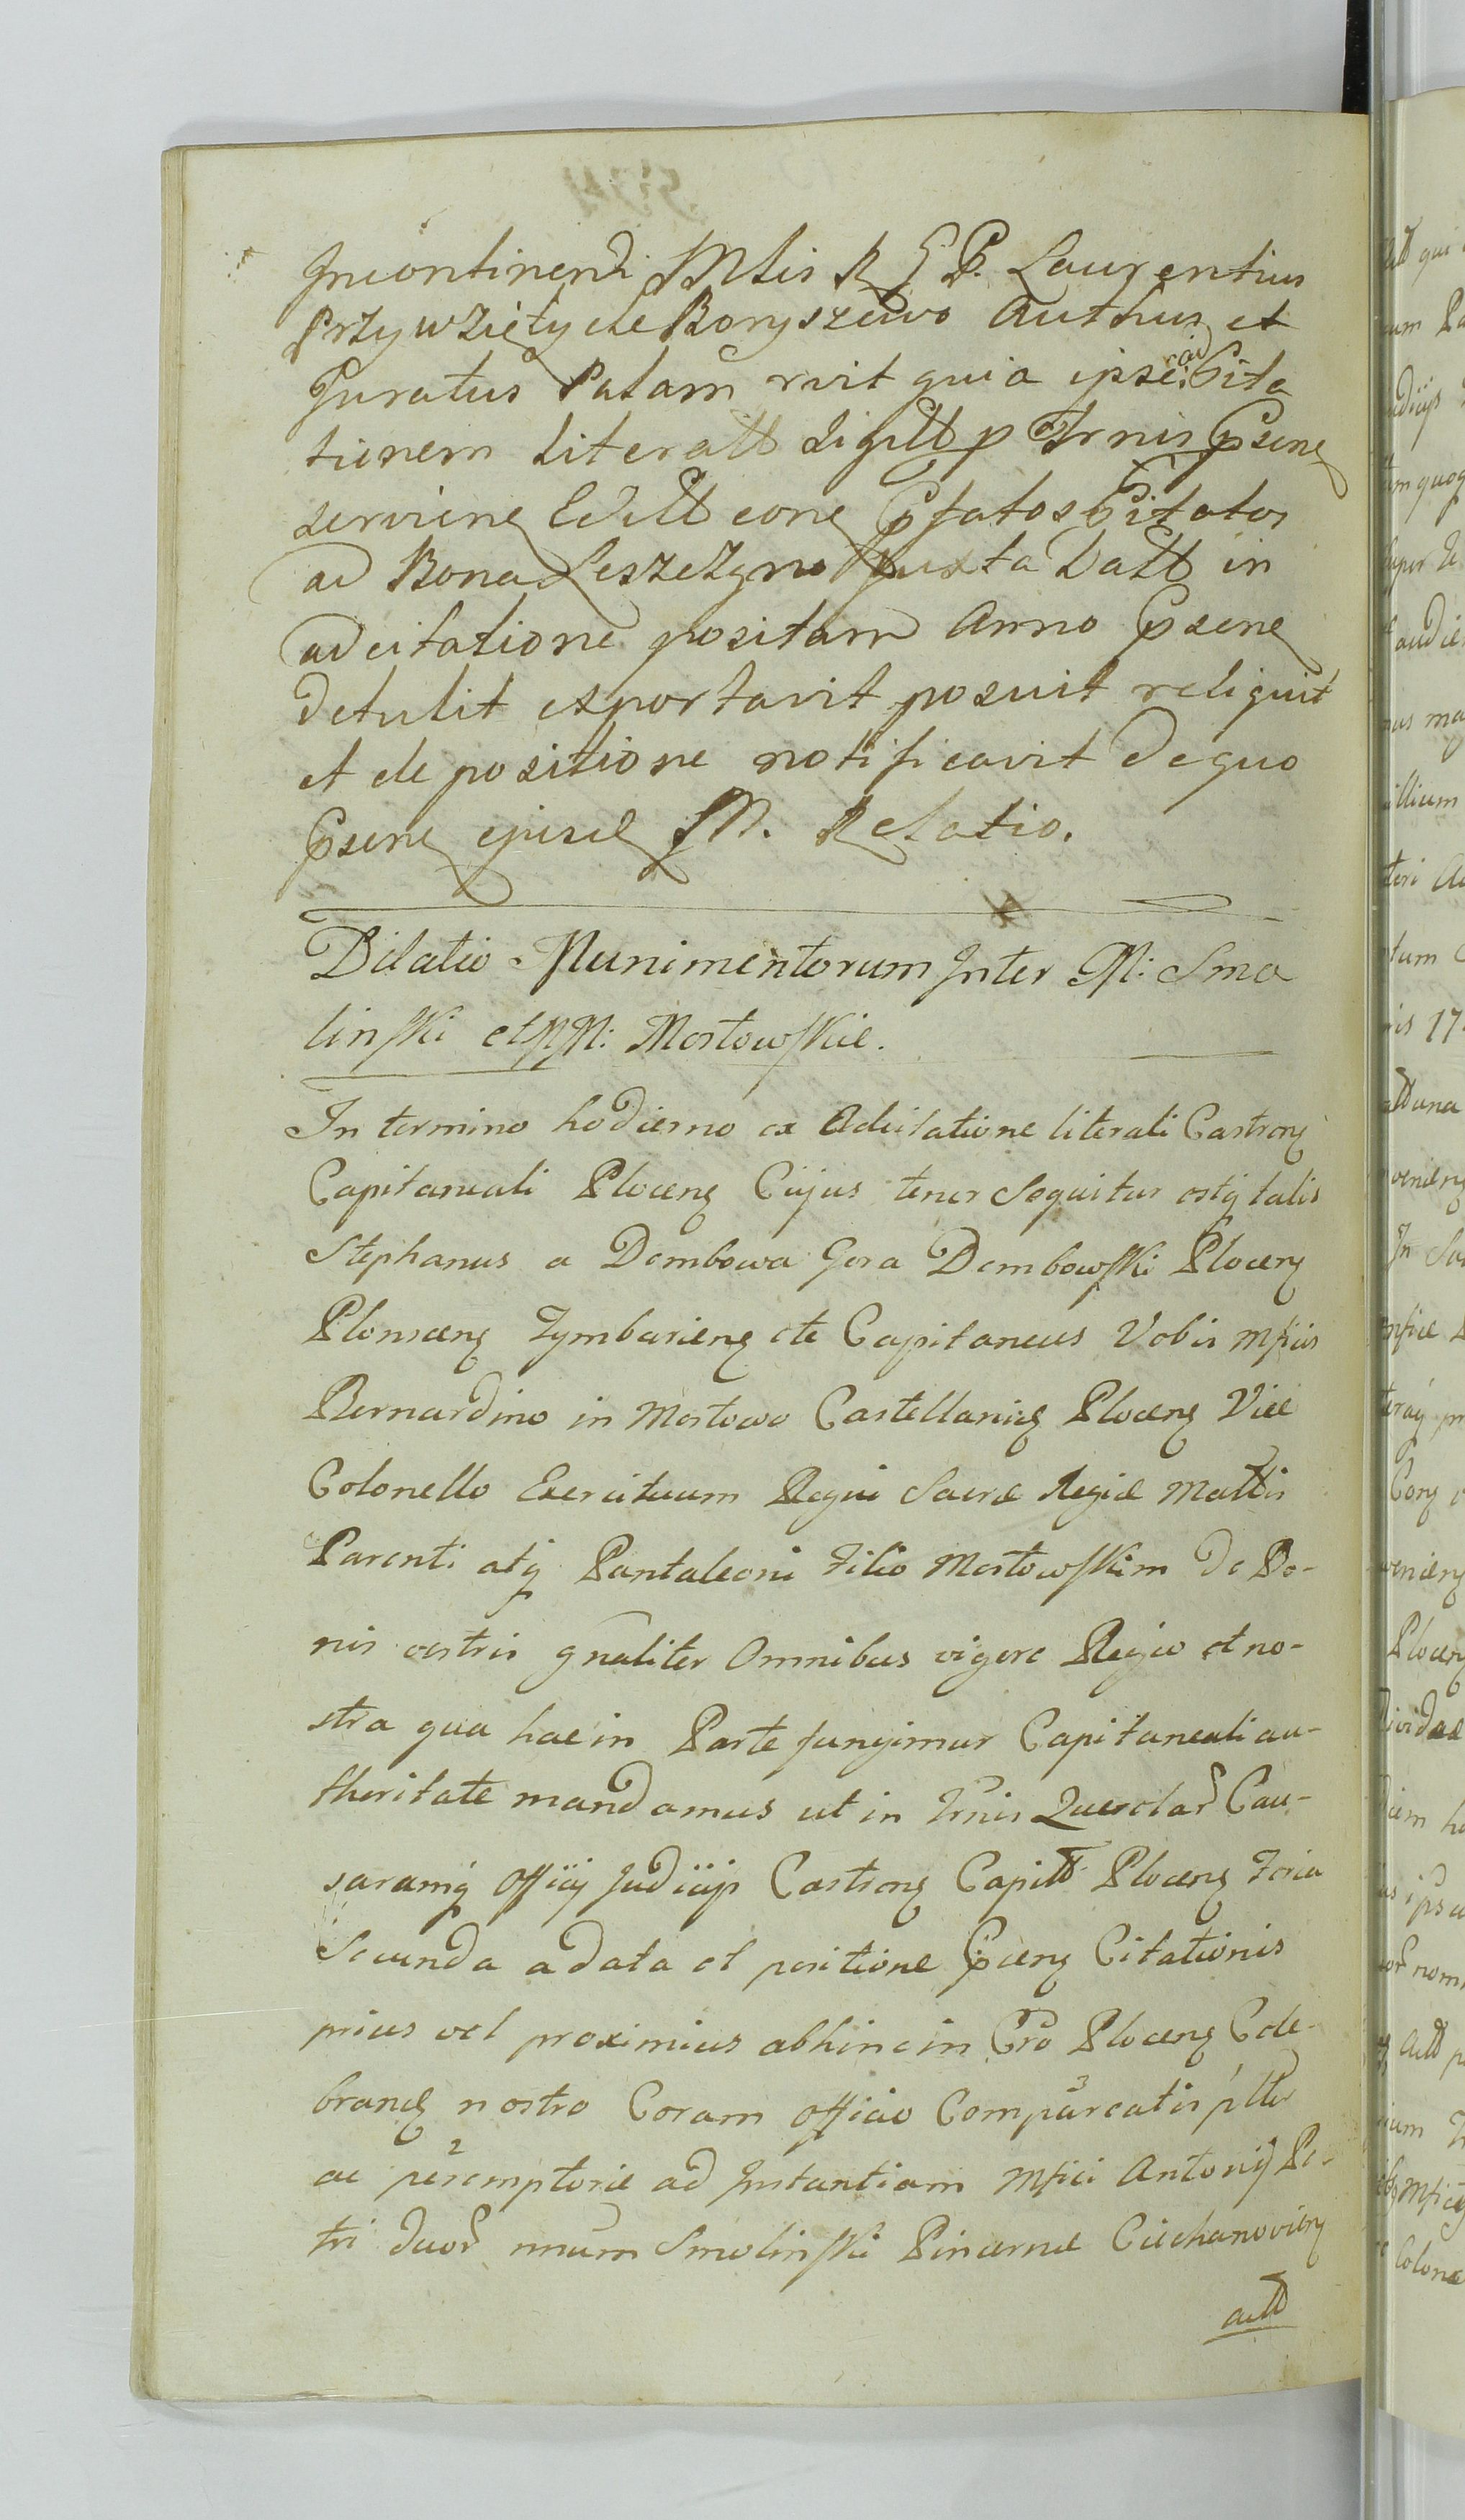 Incontinenti Mtis R G P. Laurentius
Przywzięty de Boryszewo Authus et
Juratus Palam rvit quia ipse ad Cita
tionem literatt sigilt p Trnis psens
serviens Edilt cone pfatos Citatos
ad Bona Leszczyno Juxta Datt in
adcitatione positam Anno psens
detulit exportavit posuit reliquit
et de positione notificavit De quo
psens ejusd M. Relatio.
Dilatio Munimentorum Inter M: Smo
linski et MM: Mostowskie.
In termino hodierno ex Adcitatione literali Castrens
Capitaneali Plocens Cujus tenor Sequitur estq talis
Stephanus a Dombowa Gora Dombowski Plocens
Plonscens Tymbariens etc Capitaneus Vobis Mfcis
Bernardino in Mostowo Castellanids Plocens Vice
Colonello Exercituum Regni Sacræ Regiæ Mattis
Parenti atq Pantaleoni Filio Mostowskim De Bo-
nis vestris gnaliter Omnibus vigore Regio et no-
stra qua hac in Parte fungimur Capitaneali au-
thoritate mandamus ut in Trnis Querelar Cau-
sarumq Officij Judicijs Castrens Capitt Plocens Feria
Secunda a data et positione psens Citationis
prius vel proximius abhinc in Cro Plocens Cele-
brand nostro Coram officio Compareatis pltr
3
ac peremptorie ad Instantiam Mfici Antonij Pe-
2
tri duor nnum Smolinski Pincernæ Ciechanoviens
actt